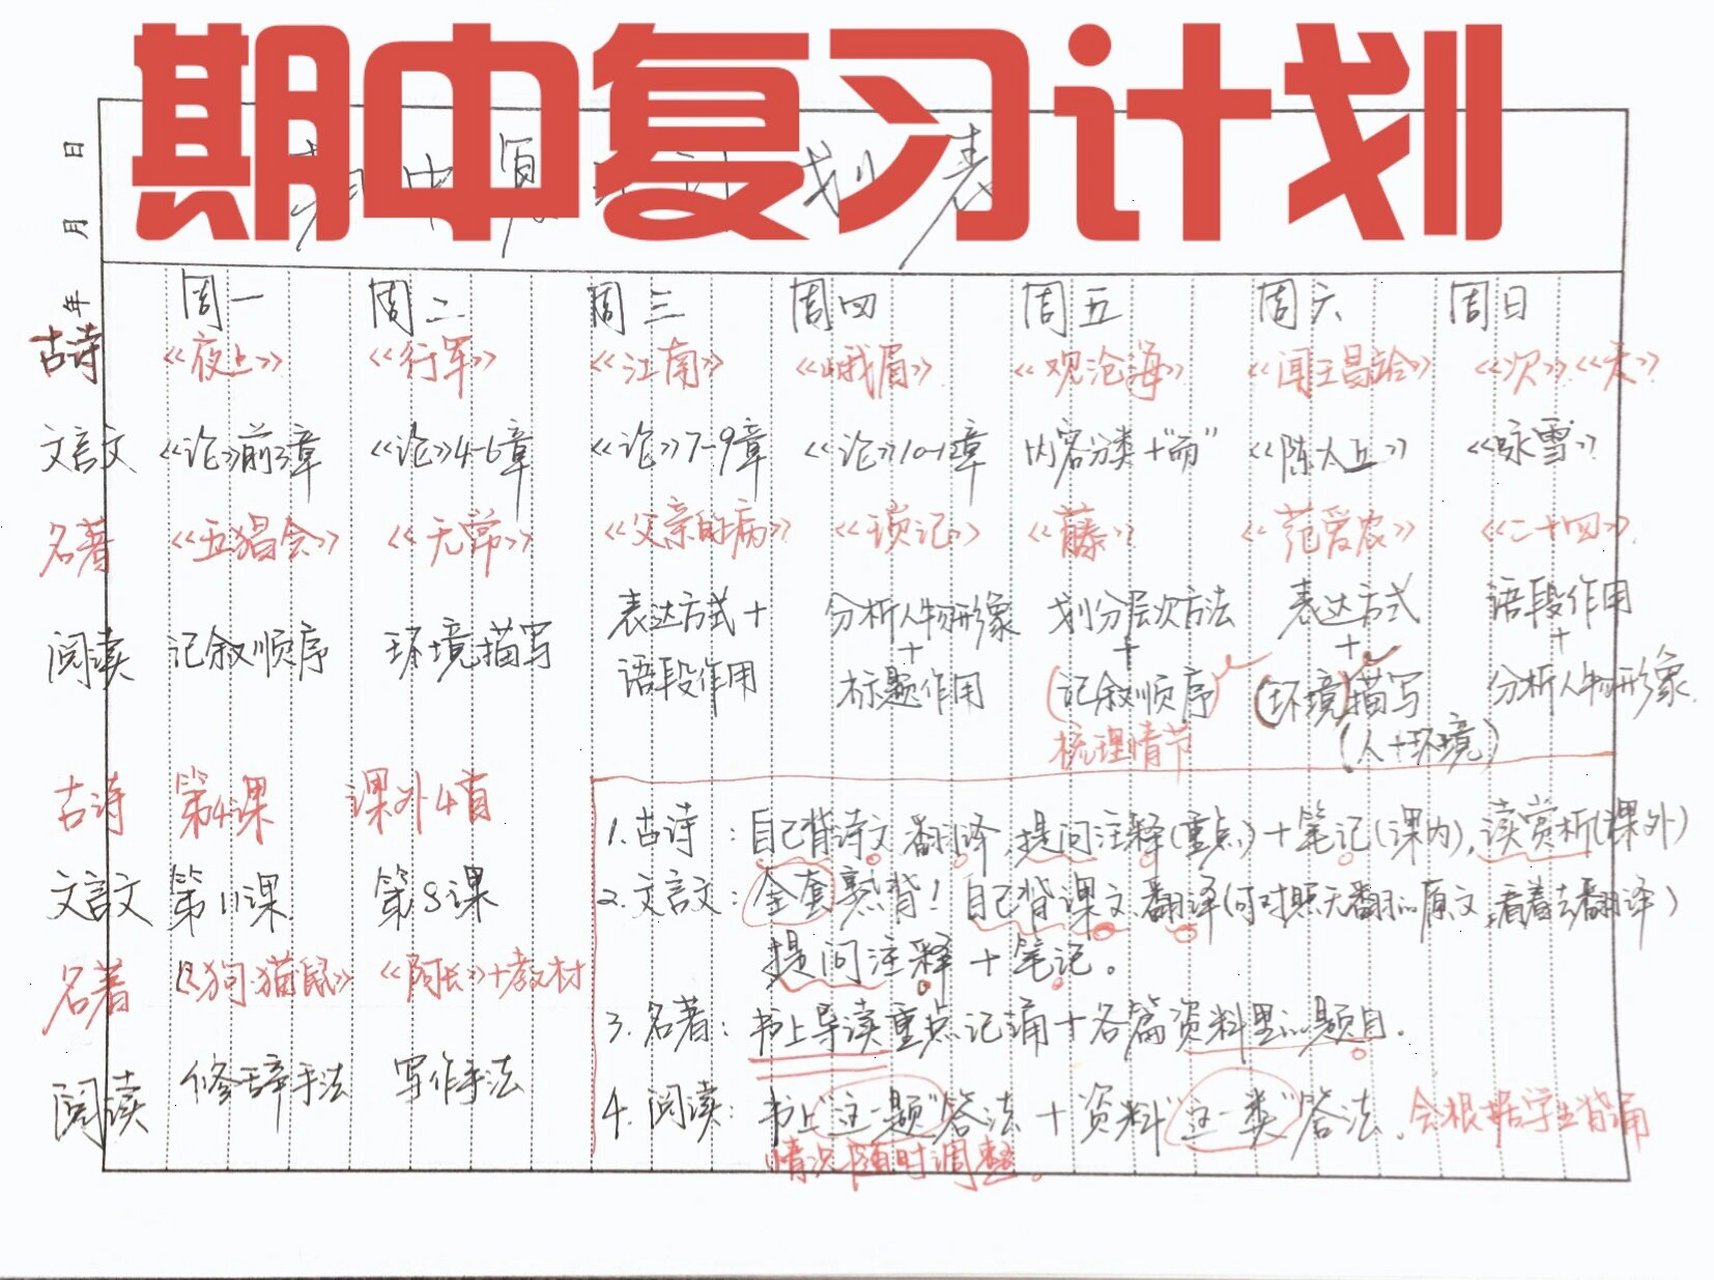 期中复习计划
期中复习计划表
年 月 日
周一 周二 周三 周四 周五 周六 周日
古诗 《夜上》 《行军》 《江南》 《峨眉》 《观沧海》 《闻王昌龄》 《次》《天》
文言文 《论》前3章 《论》4-6章 《论》7-9章 《论》10-12章 内容分类+“而” 《陈太丘》 《咏雪》
名著 《五猖会》 《无常》 《父亲的病》 《琐记》 《藤》 《范爱农》 《二十四》
阅读 记叙顺序 环境描写 表达方式+语段作用 分析人物形象+标题作用 划分层次方法+(记叙顺序) 梳理情节 表达方式+(环境)描写(人+环境) 语段作用+分析人物形象
古诗 第4课 课外4首
文言文 第11课 第8课
名著 《狗猫鼠》 《阿长》+教材
阅读 修辞手法 写作手法
1.古诗:自己背诗文,翻译,提问注释(重点)+笔记(课内),读赏析(课外)
2.文言文:全套熟背!自己背课文,翻译(可对照无翻译原文,看着去翻译)
提问注释+笔记。
3.名著:书上导读重点记诵+各篇资料里的题目。
4.阅读:书上“这一题”答法+资料“这一类”答法。会根据学生背诵
情况随时调整。